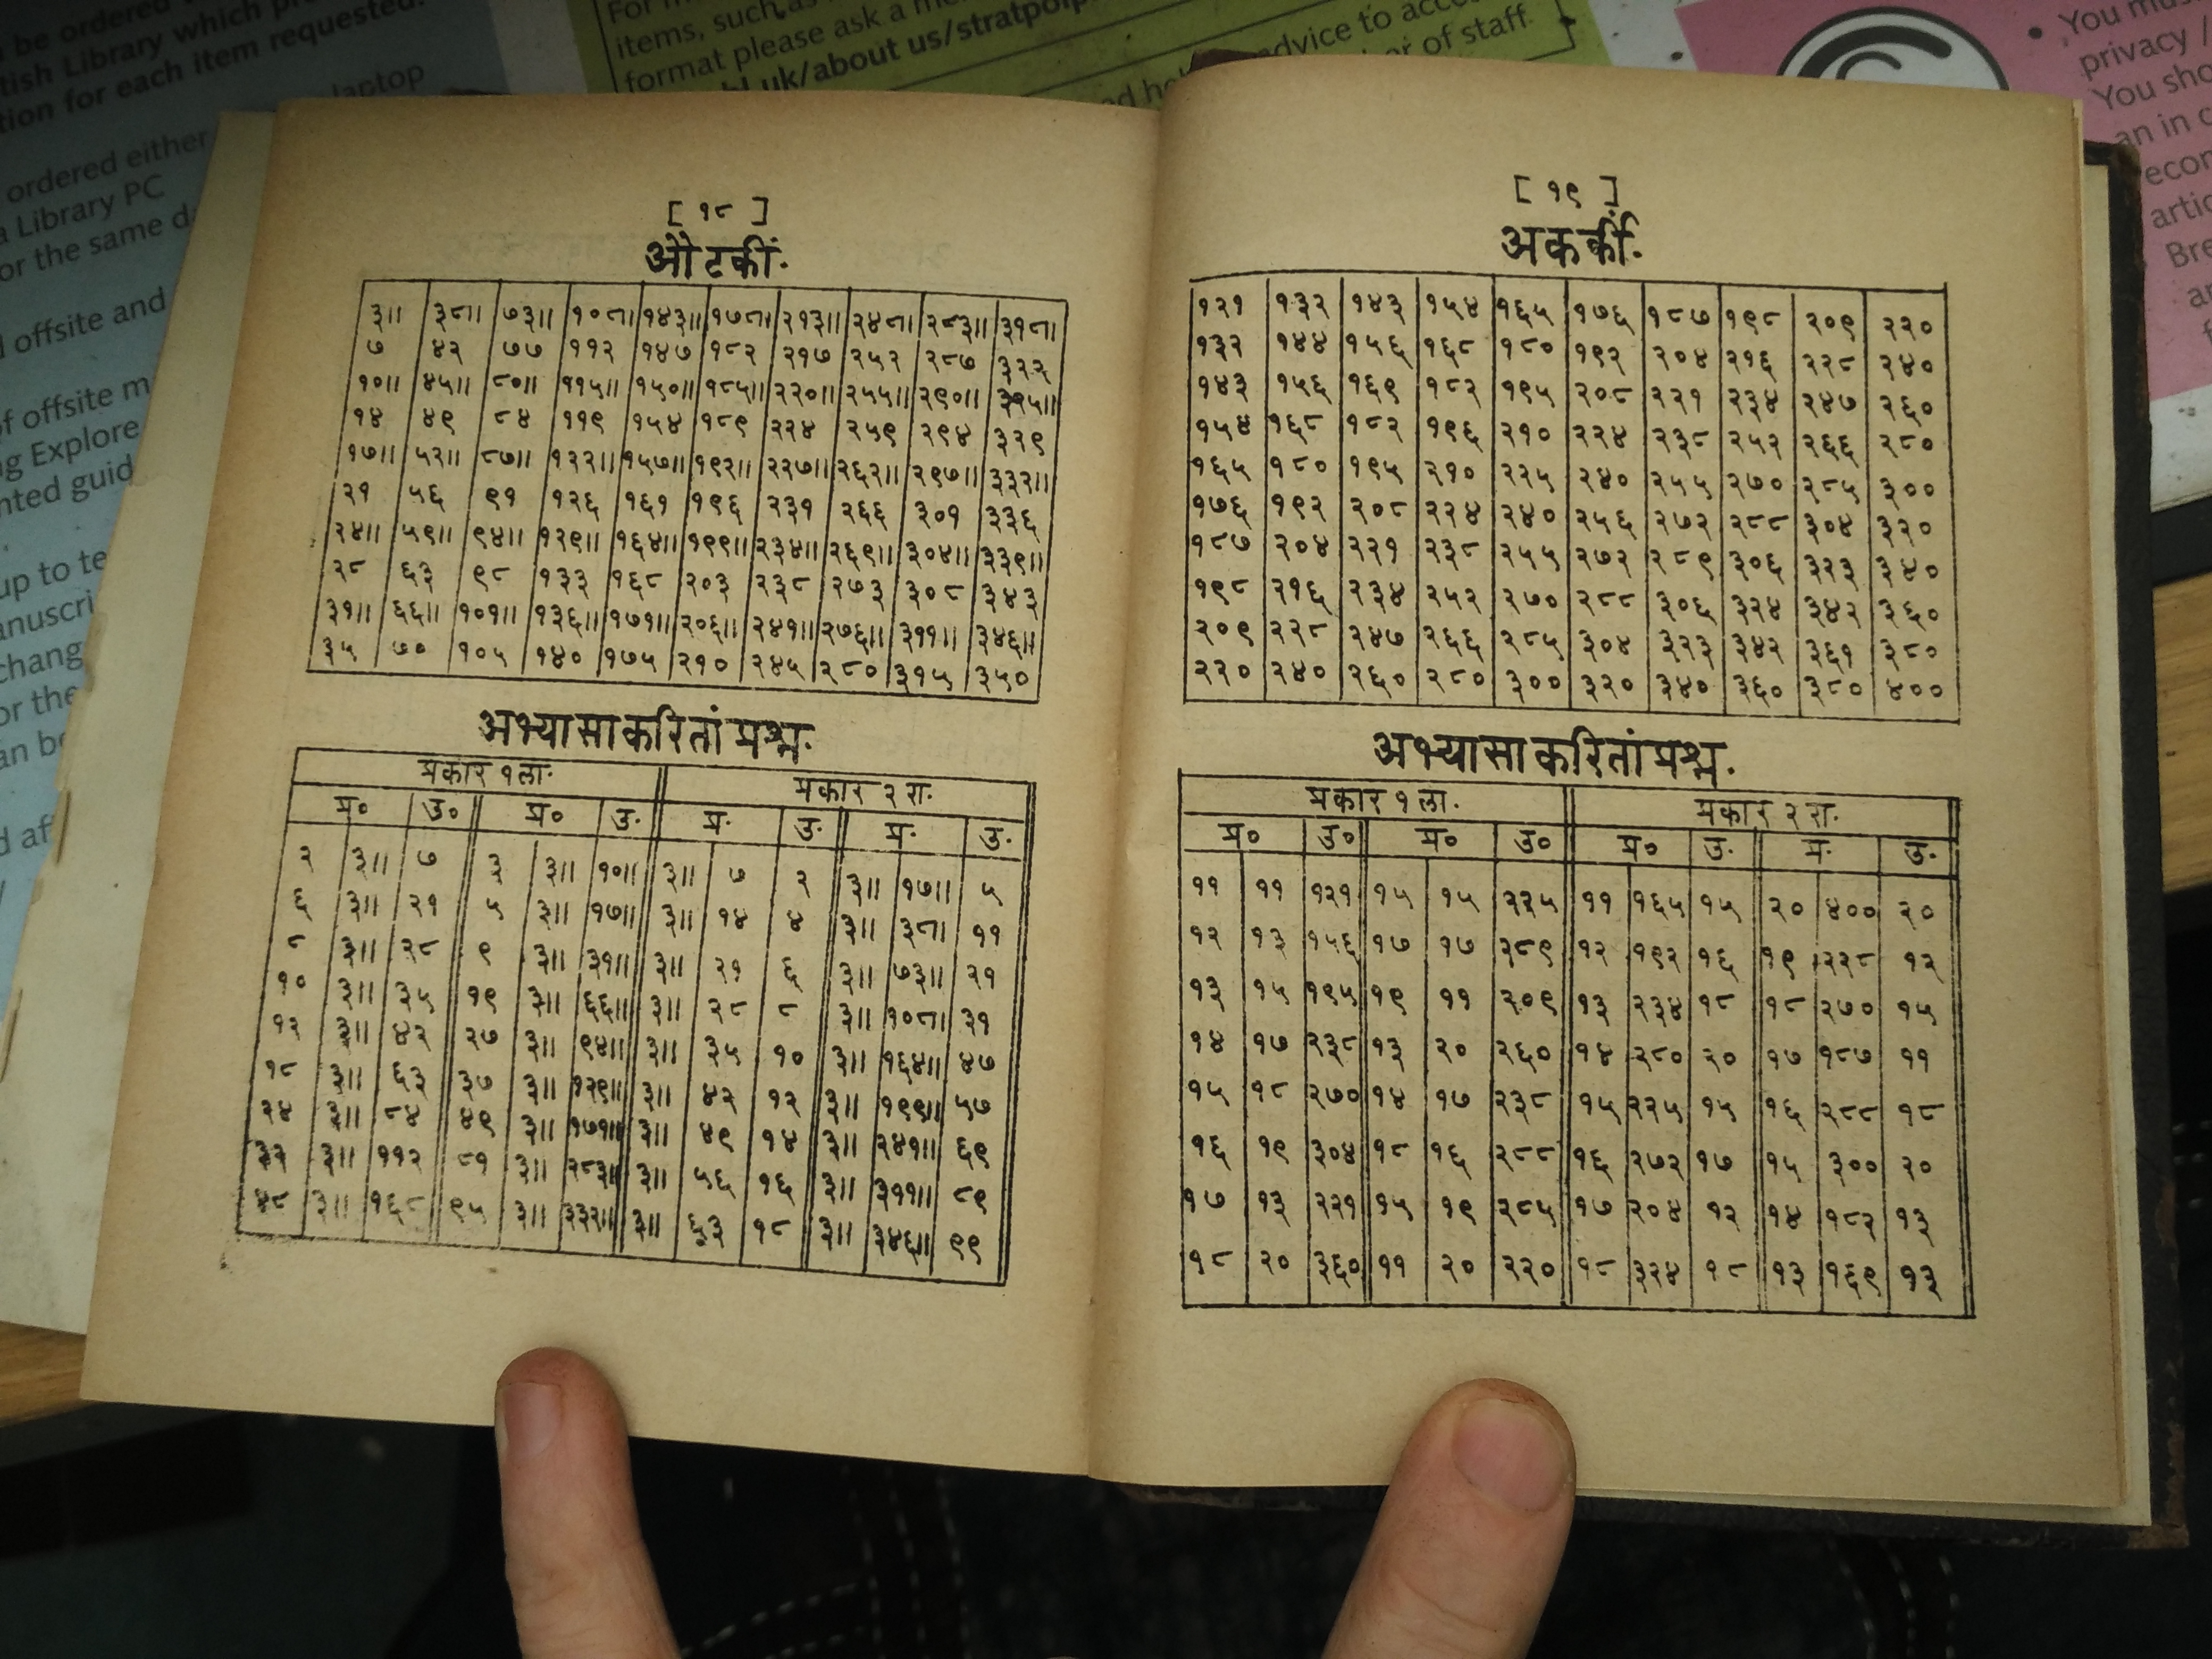 be ordered
tish Library which
tion for each item requested.
laptop
ordered either
a Library PC
or the same
offsite and
of offsite
ng Explore
nted guid
up to te
anuscri
chang
or the
an be
items, such as
format please ask a
bl.uk/about us/stratpolp
advice to
of staff
privacy /
You sho
an in
[ १८ ]
औटकीं.
३॥ ३८॥ ७३॥ १०८॥ १४३॥ १७८॥ २१३॥ २४८॥ २८३॥ ३१८॥
७ ४२ ७७ ११२ १४७ १८२ २१७ २५२ २८७ ३२२
१०॥ ४५॥ ८०॥ ११५॥ १५०॥ १८५॥ २२०॥ २५५॥ २९०॥ ३२५॥
१४ ४९ ८४ ११९ १५४ १८९ २२४ २५९ २९४ ३२९
१७॥ ५२॥ ८७॥ १२२॥ १५७॥ १९२॥ २२७॥ २६२॥ २९७॥ ३३२॥
२१ ५६ ९१ १२६ १६१ १९६ २३१ २६६ ३०१ ३३६
२४॥ ५९॥ ९४॥ १२९॥ १६४॥ १९९॥ २३४॥ २६९॥ ३०४॥ ३३९॥
२८ ६३ ९८ १३३ १६८ २०३ २३८ २७३ ३०८ ३४३
३१॥ ६६॥ १०१॥ १३६॥ १७१॥ २०६॥ २४१॥ २७६॥ ३११॥ ३४६॥
३५ ७० १०५ १४० १७५ २१० २४५ २८० ३१५ ३५०
अभ्यासाकरितां प्रश्न.
प्रकार १ला. प्रकार २ रा.
प्र० उ० प्र० उ. प्र. उ. प्र. उ.
२ ३॥ ७ ३ ३॥ १०॥ ३॥ ७ २ ३॥ १७॥ ५
६ ३॥ २१ ५ ३॥ १७॥ ३॥ १४ ४ ३॥ ३८॥ ११
८ ३॥ २८ ९ ३॥ ३१॥ ३॥ २१ ६ ३॥ ७३॥ २१
१० ३॥ ३५ १९ ३॥ ६६॥ ३॥ २८ ८ ३॥ १०८॥ ३१
१२ ३॥ ४२ २७ ३॥ ९४॥ ३॥ ३५ १० ३॥ १६४॥ ४७
१८ ३॥ ६३ ३७ ३॥ १२९॥ ३॥ ४२ १२ ३॥ १९९॥ ५७
२४ ३॥ ८४ ४९ ३॥ १७१॥ ३॥ ४९ १४ ३॥ २४१॥ ६९
३२ ३॥ ११२ ८१ ३॥ २८३॥ ३॥ ५६ १६ ३॥ ३११॥ ८९
४८ ३॥ १६८ ९५ ३॥ ३३२॥ ३॥ ६३ १८ ३॥ ३४६॥ ९९
[ १९ ]
अकर्की.
१२१ १३२ १४३ १५४ १६५ १७६ १८७ १९८ २०९ २२०
१३२ १४४ १५६ १६८ १८० १९२ २०४ २१६ २२८ २४०
१४३ १५६ १६९ १८२ १९५ २०८ २२१ २३४ २४७ २६०
१५४ १६८ १८२ १९६ २१० २२४ २३८ २५२ २६६ २८०
१६५ १८० १९५ २१० २२५ २४० २५५ २७० २८५ ३००
१७६ १९२ २०८ २२४ २४० २५६ २७२ २८८ ३०४ ३२०
१८७ २०४ २२१ २३८ २५५ २७२ २८९ ३०६ ३२३ ३४०
१९८ २१६ २३४ २५२ २७० २८८ ३०६ ३२४ ३४२ ३६०
२०९ २२८ २४७ २६६ २८५ ३०४ ३२३ ३४२ ३६१ ३८०
२२० २४० २६० २८० ३०० ३२० ३४० ३६० ३८० ४००
अभ्यासाकरितां प्रश्न.
प्रकार १ला. प्रकार २ रा.
प्र० उ० प्र० उ० प्र० उ. प्र. उ.
११ ११ १२१ १५ १५ २२५ ११ १६५ १५ २० ४०० २०
१२ १३ १५६ १७ १७ २८९ १२ १९२ १६ १९ २२८ १२
१३ १५ १९५ १९ ११ २०९ १३ २३४ १८ १८ २७० १५
१४ १७ २३८ १३ २० २६० १४ २८० २० १७ १८७ ११
१५ १८ २७० १४ १७ २३८ १५ २२५ १५ १६ २८८ १८
१६ १९ ३०४ १८ १६ २८८ १६ २७२ १७ १५ ३०० २०
१७ १३ २२१ १५ १९ २८५ १७ २०४ १२ १४ १८२ १३
१८ २० ३६० ११ २० २२० १८ ३२४ १८ १३ १६९ १३